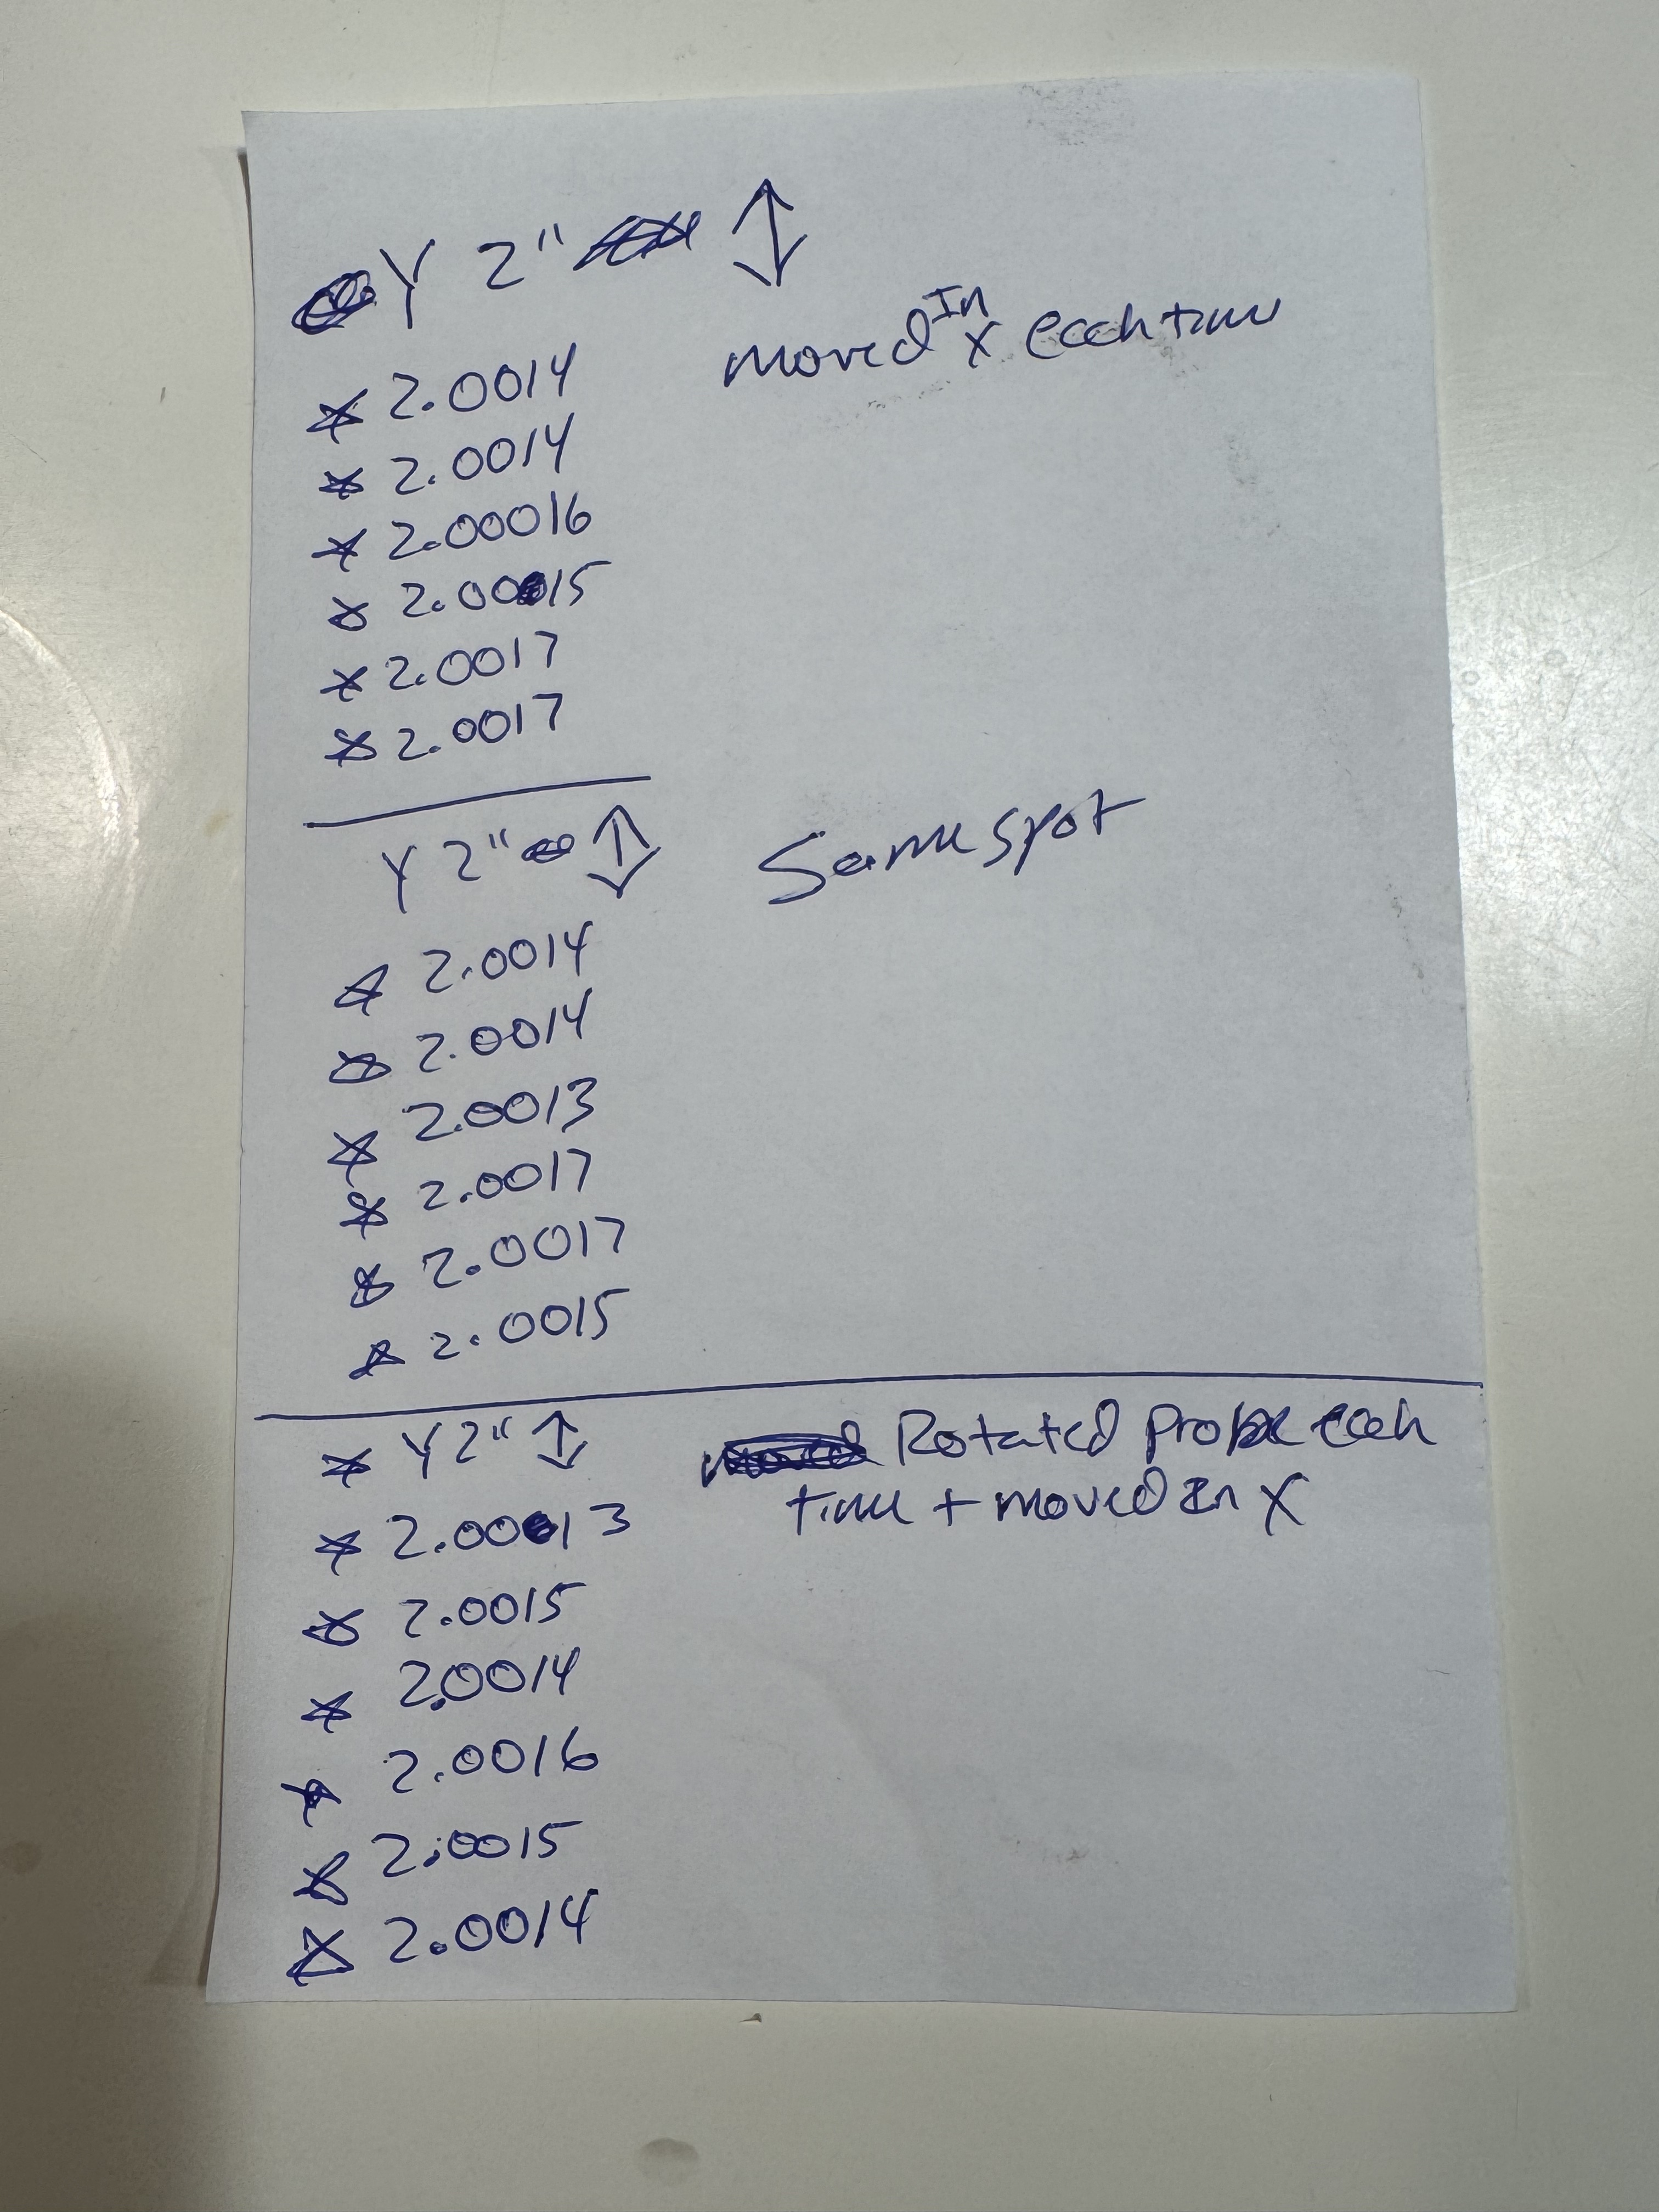 Y 2" ↕
moved In x each time
* 2.0014
* 2.0014
* 2.00016
* 2.0015
* 2.0017
* 2.0017
Y 2" ↕
Same spot
* 2.0014
* 2.0014
* 2.0013
* 2.0017
* 2.0017
* 2.0015
* Y 2" ↕
Rotated Probe each
time + moved in X
* 2.0013
* 2.0015
* 2.0014
* 2.0016
* 2.0015
* 2.0014